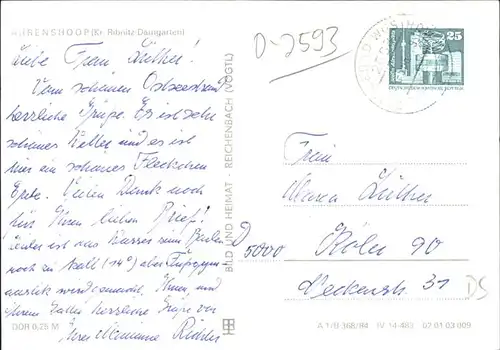 AHRENSHOOP (Kr. Ribnitz-Damgarten)
Liebe Frau Luther!
Vom schönen Ostseestrand
herzliche Grüße. Es ist sehr
schönes Wetter und es ist
hier ein schönes Fleckchen
Erde. Vielen Dank noch
für Ihren lieben Brief!
Leider ist das Wasser zum Baden
noch zu kalt (14°) aber
wird gemacht. Ihnen und
Ihrem Gatten herzliche Grüße von
Ihrer Marianne Richter
DDR 0,25 M
BILD UND HEIMAT · REICHENBACH (VOGTL)
D-2593
25
Frau
Luther
D
5000 Köln 90
Neckarstr. 31
DS
A 1/B 368/84 IV-14-483 02 01 03 009